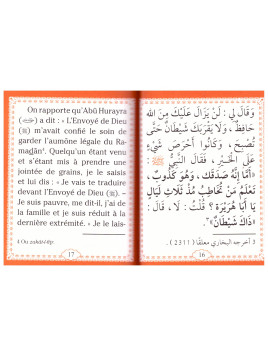 On rapporte qu'Abū Hurayra
(ﷺ) a dit : « L'Envoyé de Dieu
(ﷺ) m'avait confié le soin de
garder l'aumône légale du Ra-
maḍān⁴. Quelqu'un étant venu
et s'étant mis à prendre une
jointée de grains, je le saisis
et lui dis : « Je vais te traduire
devant l'Envoyé de Dieu (ﷺ). –
Je suis pauvre, me dit-il, j'ai de
la famille et je suis réduit à la
dernière extrémité. » Je le lais-
4 Ou zakāt/fiṭr
17
وَقَالَ لِي : لَنْ يَزَالَ عَلَيْكَ مِنَ اللهِ
حَافِظٌ، وَلَا يَقْرَبَكَ شَيْطَانٌ حَتَّى
تُصْبِحَ، وَكَانُوا أَحْرَصَ شَيْءٍ
عَلَى الْخَيْرِ، فَقَالَ النَّبِيُّ ﷺ:
«أَمَا إِنَّهُ صَدَقَكَ، وَهُوَ كَذُوبٌ،
تَعْلَمُ مَنْ تُخَاطِبُ مُذْ ثَلَاثِ لَيَالٍ
يَا أَبَا هُرَيْرَةَ ؟ قُلْتُ : لَا، قَالَ :
ذَاكَ شَيْطَانٌ»³.
3 أخرجه البخاري معلقا (2311).
16